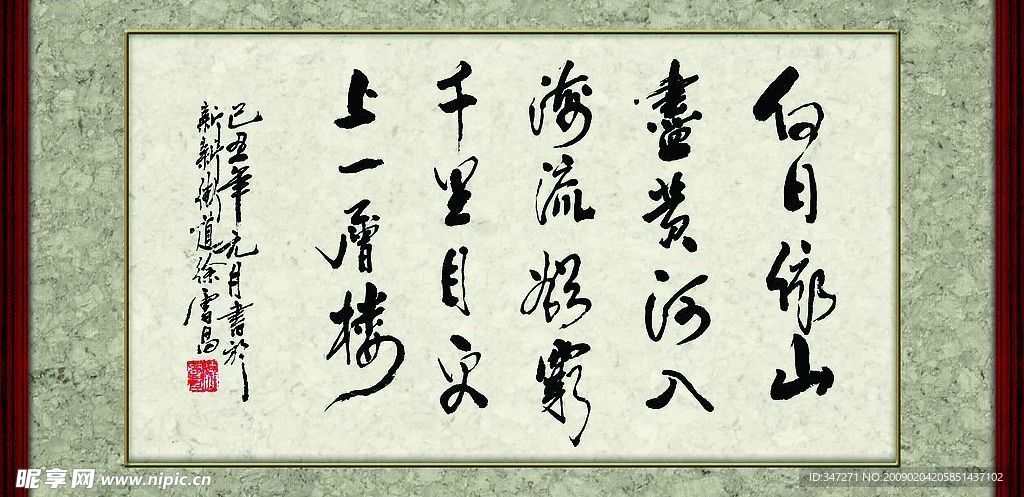 白日依山
盡黄河入
海流欲窮
千里目更
上一層楼
己丑年元月書於
新新街道徐雪昌
昵享网 www.nipic.cn
ID:347271 NO:20090204205851437102